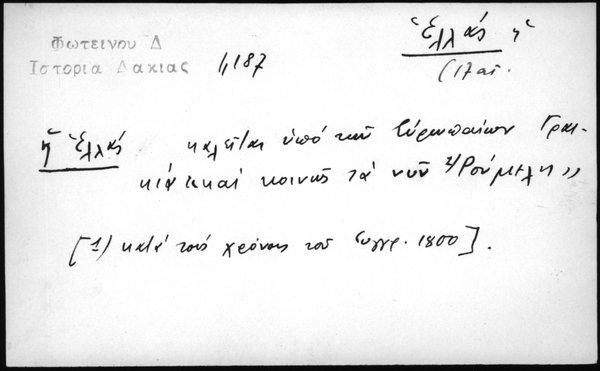 Ἑλλάς ἡ
(17 αἰ.
Φωτεινου Δ
Ιστορια Δακιας 1,187
ἡ Ἑλλάς καλεῖται ὑπό τῶν Εὐρωπαίων Γραι-
κία καί κοινῶς τά νῦν "Ρούμελη,,
[1) κατά τούς χρόνους τοῦ συγγρ. 1800].